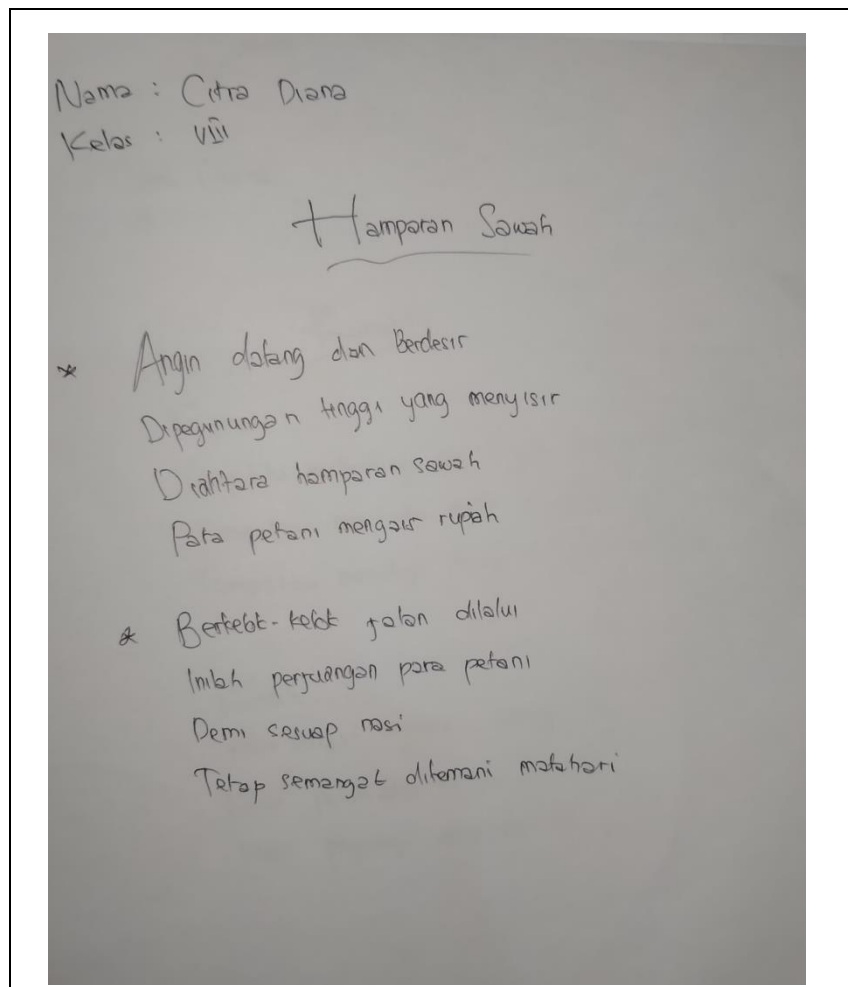 Nama : Citra Diana
Kelas : VIII
Hamparan Sawah
* Angin datang dan Berdesir
Dipegunungan tinggi yang menyisir
Diantara hamparan sawah
Para petani mengais rupiah
* Berkelok-kelok jalan dilalui
Inilah perjuangan para petani
Demi sesuap nasi
Tetap semangat ditemani matahari